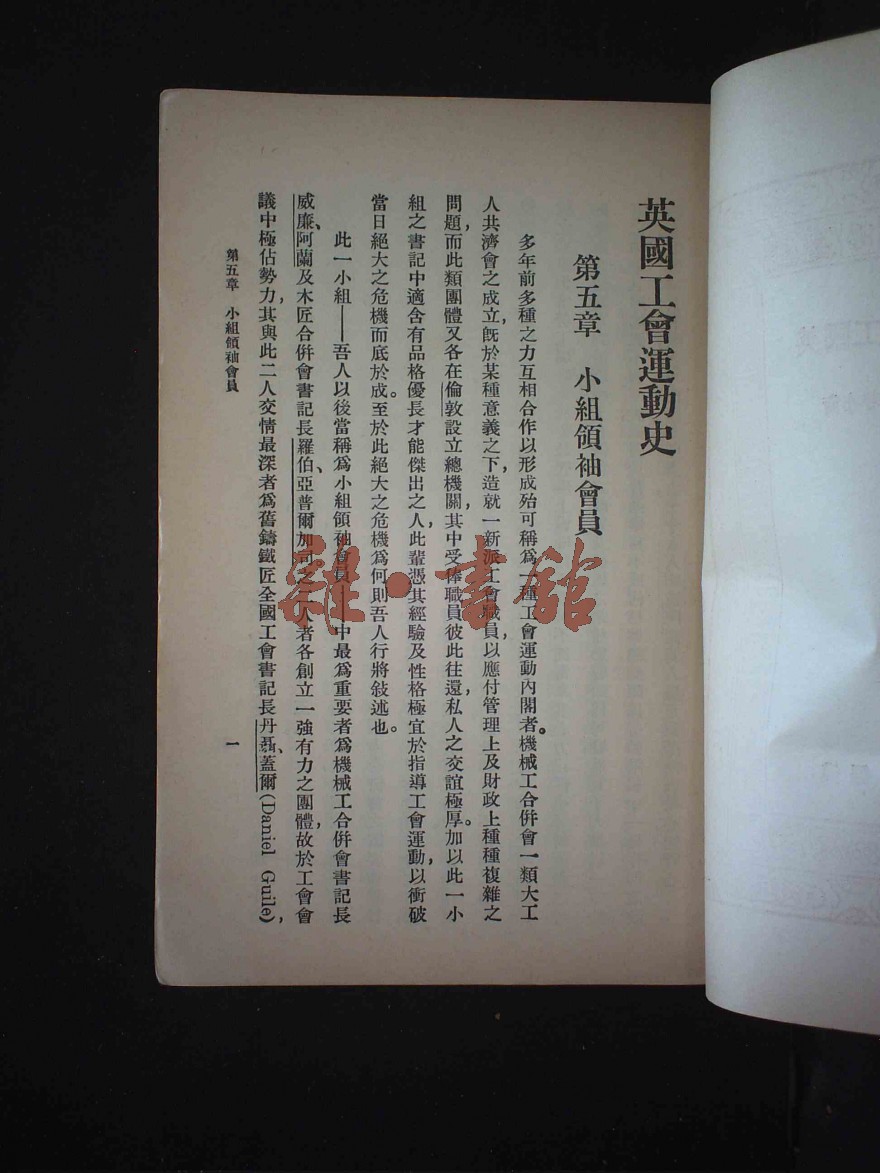 英國工會運動史
第五章　小組領袖會員
多年前多種之力互相合作以形成殆可稱爲一種工會運動內閣者。機械工合併會一類大工
人共濟會之成立，旣於某種意義之下，造就一新派工會職員，以應付管理上及財政上種種複雜之
問題，而此類團體又各在倫敦設立總機關，其中受俸職員彼此往還，私人之交誼極厚。加以此一小
組之書記中適含有品格優長才能傑出之人，此輩憑其經驗及性格極宜於指導工會運動，以衝破
當日絕大之危機而底於成。至於此絕大之危機爲何則吾人行將敍述也。
此一小組——吾人以後當稱爲小組領袖會員——中最爲重要者爲機械工合併會書記長
威廉、阿蘭及木匠合併會書記長羅伯、亞普爾加司之二人者各創立一強有力之團體，故於工會會
議中極佔勢力，其與此二人交情最深者爲舊鑄鐵匠全國工會書記長丹聶、蓋爾(Daniel Guile)，
第五章　小組領袖會員　一
雜·書館